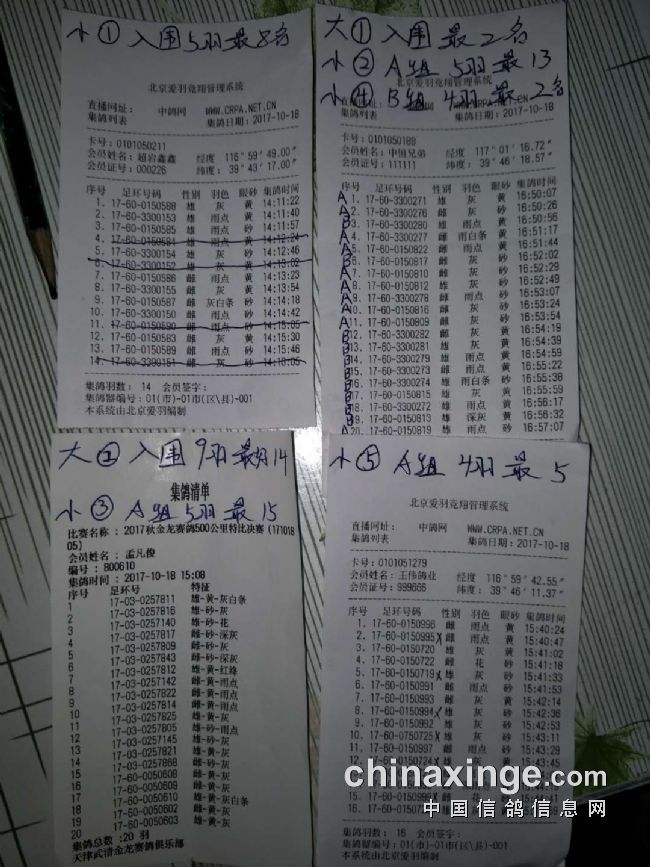 小① 入围5羽最8名
北京爱羽竞翔管理系统
直播网址: 中鸽网 WWW.CRPA.NET.CN
集鸽列表 集鸽日期:2017-10-18
卡号:0101050211
会员姓名:赵岩鑫鑫 经度 116°59′49.00″
会员证号:000226 纬度: 39°43′17.00″
序号 足环号码 性别 羽色 眼砂 集鸽时间
1. 17-60-0150588 雄 灰 黄 14:11:22
2. 17-60-3300153 雄 雨点 黄 14:11:40
3. 17-60-0150585 雄 雨点 砂 14:11:57
4. 17-60-0150584 雌 雨点 黄 14:12:24
5. 17-60-3300154 雄 灰 砂 14:12:46
6. 17-60-3300152 雄 灰 黄 14:13:02
7. 17-60-0150586 雌 雨点 黄 14:13:23
8. 17-60-3300155 雄 灰 黄 14:13:54
9. 17-60-0150587 雌 灰白条 砂 14:14:18
10. 17-60-3300150 雌 雨点 砂 14:14:42
11. 17-60-0150590 雌 雨点 砂 14:15:05
12. 17-60-0150583 雌 灰 黄 14:15:30
13. 17-60-0150589 雌 雨点 砂 14:15:46
14. 17-60-3300151 雌 灰 砂 14:16:05
集鸽羽数: 14 会员签字:
集鸽器编号:01(市)-01市(区\县)-001
本系统由北京爱羽编制
大① 入围 最2名
小② A组 5羽 最13
小④ B组 4羽 最2名
北京爱羽竞翔管理系统
直播网址: 中鸽网 WWW.CRPA.NET.CN
集鸽列表 集鸽日期:2017-10-18
卡号:0101050188
会员姓名:中恒兄弟 经度 117°01′16.72″
会员证号:111111 纬度: 39°46′18.57″
序号 足环号码 性别 羽色 眼砂 集鸽时间
A 1. 17-60-3300271 雄 灰 黄 16:50:07
A 2. 17-60-3300276 雌 灰 砂 16:50:26
B 3. 17-60-3300280 雄 雨点 黄 16:50:56
A 4. 17-60-3300277 雌 雨白条 黄 16:51:17
A 5. 17-60-0150822 雌 雨点 砂 16:51:44
B 6. 17-60-0150817 雌 灰 砂 16:52:02
7. 17-60-0150810 雌 灰 砂 16:52:29
8. 17-60-0150812 雄 灰 砂 16:52:49
9. 17-60-0150816 雄 雨点 砂 16:53:07
10. 17-60-3300278 雌 雨点 砂 16:53:24
A 11. 17-60-0150809 雌 灰 砂 16:53:54
12. 17-60-3300282 雌 灰 黄 16:54:19
13. 17-60-3300281 雄 灰 黄 16:54:39
14. 17-60-3300279 雄 雨点 黄 16:54:59
15. 17-60-3300273 雄 雨点 黄 16:55:19
16. 17-60-3300274 雄 雨白条 砂 16:55:38
17. 17-60-0150815 雄 灰 黄 16:55:59
18. 17-60-3300272 雄 雨点 黄 16:56:17
19. 17-60-0150813 雄 深灰 黄 16:56:32
20. 17-60-0150819 雌 雨点 砂 16:57:07
大② 入围 9羽 最14
小③ A组 5羽 最15
集鸽清单
比赛名称:2017秋金龙赛鸽500公里特比决赛(171018
05)
会员姓名:孟凡俊
编号:800610
集鸽时间:2017-10-18 15:08
序号 足环号 特征
1 17-03-0257811 雄-黄-灰白条
2 17-03-0257816 雄-砂-灰
3 17-03-0257140 雌-砂-花
4 17-03-0257817 雌-砂-深灰
5 17-03-0257809 雌-砂-灰
6 17-03-0257843 雌-砂-深灰
7 17-03-0257812 雄-黄-红绛
8 17-03-0257142 雌-黄-雨点
9 17-03-0257822 雌-黄-雨点
10 17-03-0257814 雌-黄-雨点
11 17-03-0257825 雄-黄-灰
12 17-03-0257805 雄-砂-雨点
13 17-03-0257145 雄-砂-灰
14 17-03-0257821 雄-黄-灰
15 17-03-0257868 雌-砂-灰
16 17-60-0050609 雄-黄-灰
17 17-60-0050608 雄-黄-灰
18 17-60-0050610 雄-黄-灰白条
19 17-60-0050602 雌-黄-灰
20 17-60-0050603 雄-黄-灰
集鸽总数:20 羽
天津武清金龙赛鸽俱乐部
小⑤ A组 4羽 最5
北京爱羽竞翔管理系统
直播网址: 中鸽网 WWW.CRPA.NET.CN
集鸽列表 集鸽日期:2017-10-18
卡号:0101051279
会员姓名:王伟鸽业 经度 116°59′42.55″
会员证号:999665 纬度: 39°46′11.37″
序号 足环号码 性别 羽色 眼砂 集鸽时间
1. 17-60-0150996 雌 雨点 黄 15:40:24
2. 17-60-0150995X 雌 雨点 黄 15:40:47
3. 17-60-0150720 雄 灰 黄 15:41:02
4. 17-60-0150722 雌 花 砂 15:41:18
5. 17-60-0150719X 雄 灰 砂 15:41:33
6. 17-60-0150991 雌 雨点 砂 15:41:53
7. 17-60-0150993 雌 雨点 黄 15:42:14
8. 17-60-0150994X 雄 灰 砂 15:42:36
9. 17-60-0150992 雄 雨点 砂 15:42:53
10. 17-60-0750725X 雄 灰 砂 15:43:11
11. 17-60-0150997 雌 雨点 砂 15:43:29
集鸽羽数: 16 会员签字:
集鸽器编号:01(市)-01市(区\县)-001
本系统由北京爱羽编制
chinaxinge.com
中国信鸽信息网